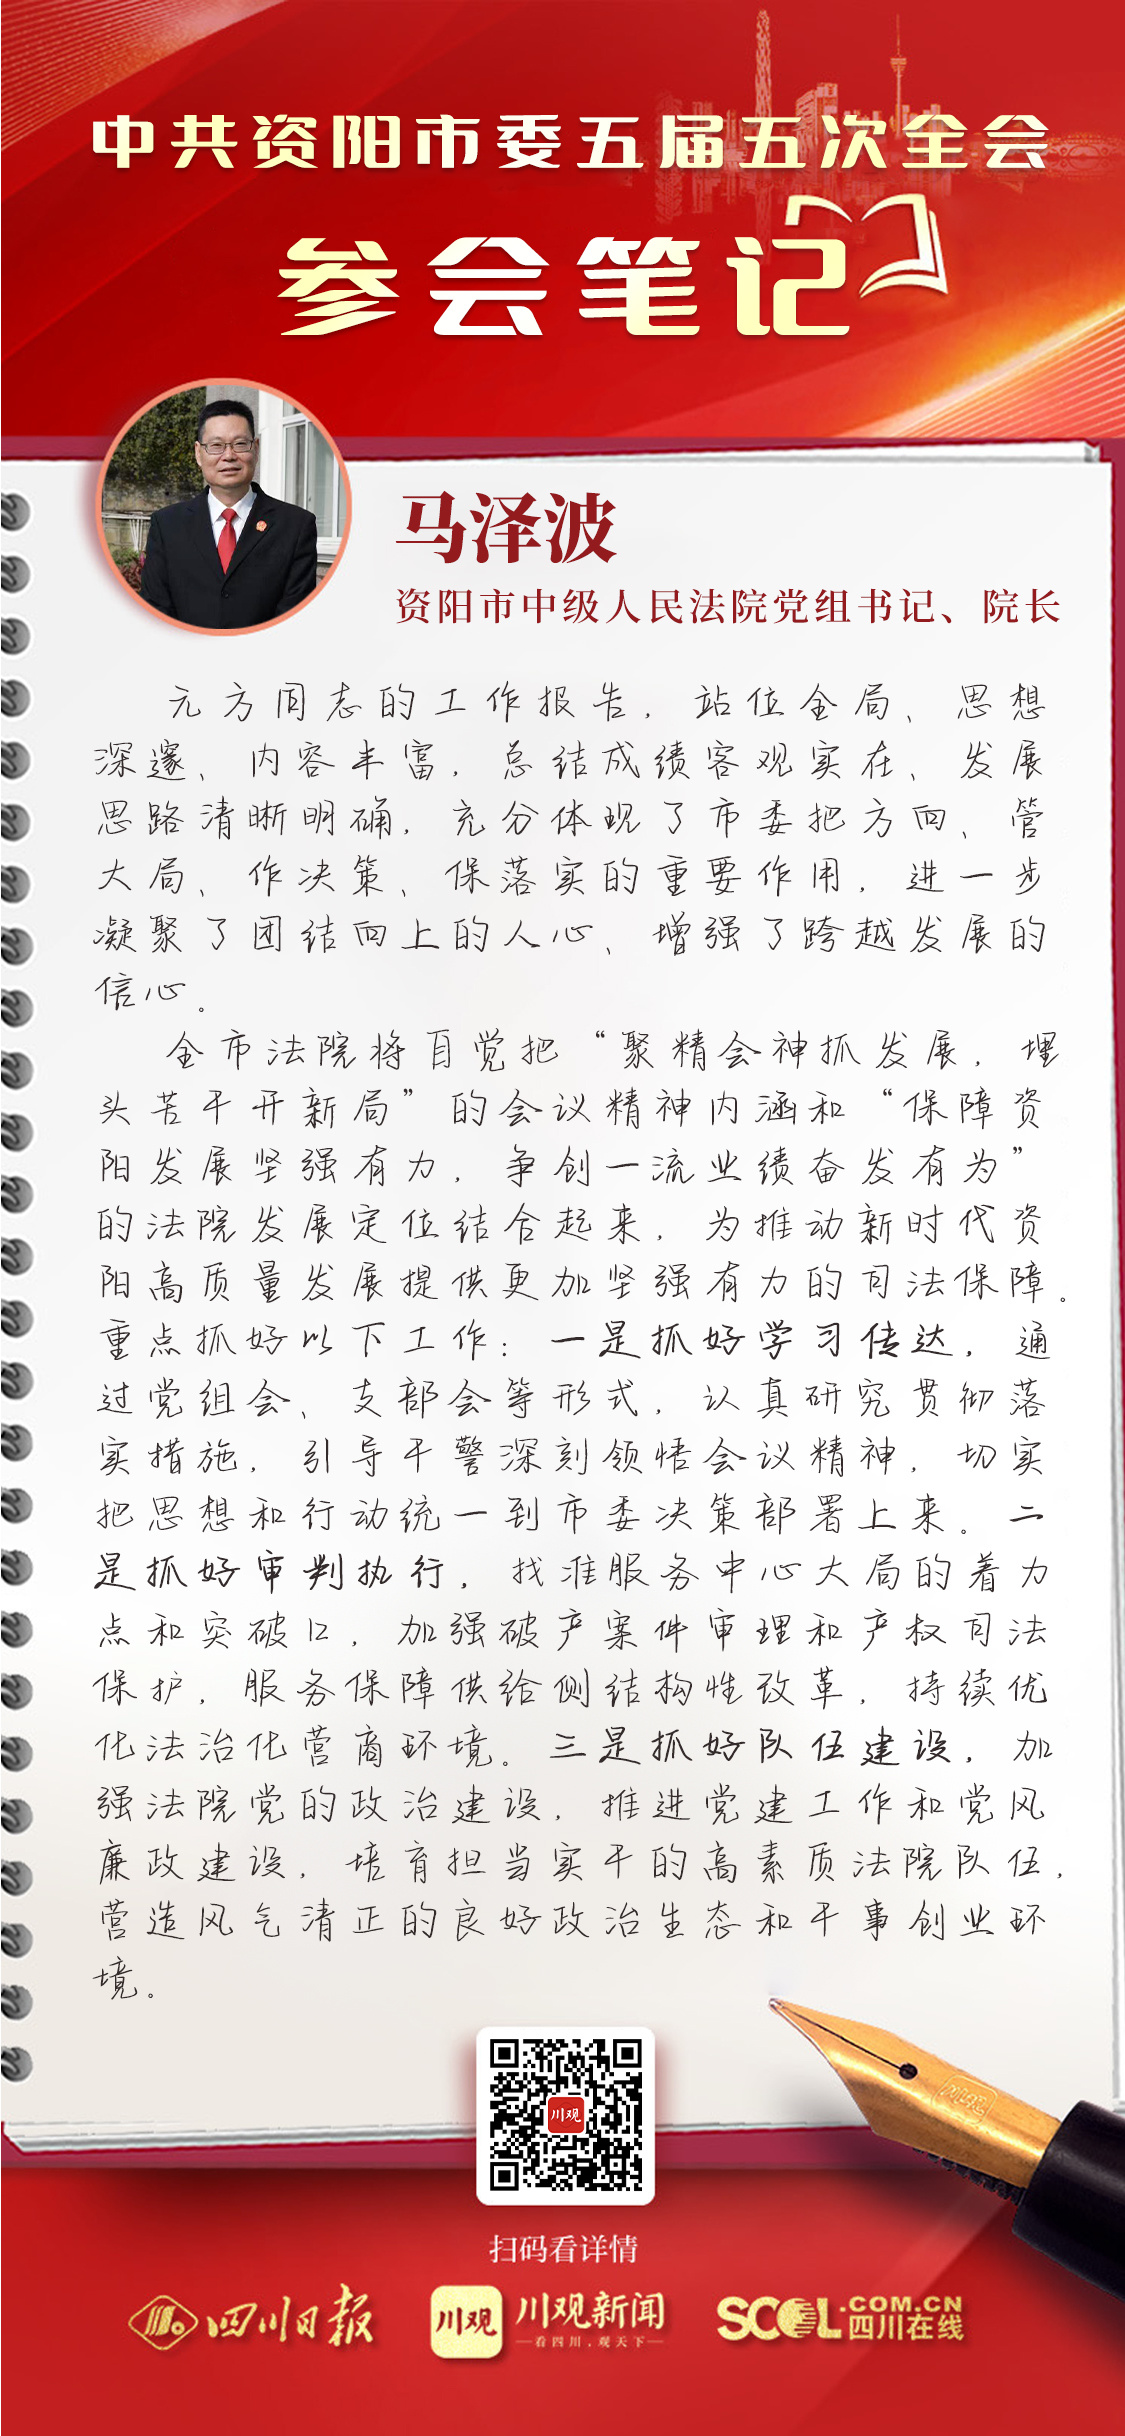 中共资阳市委五届五次全会
参会笔记
马泽波
资阳市中级人民法院党组书记、院长
元方同志的工作报告，站位全局、思想
深邃、内容丰富，总结成绩客观实在、发展
思路清晰明确，充分体现了市委把方向、管
大局、作决策、保落实的重要作用，进一步
凝聚了团结向上的人心、增强了跨越发展的
信心。
全市法院将自觉把“聚精会神抓发展，埋
头苦干开新局”的会议精神内涵和“保障资
阳发展坚强有力，争创一流业绩奋发有为”
的法院发展定位结合起来，为推动新时代资
阳高质量发展提供更加坚强有力的司法保障。
重点抓好以下工作：一是抓好学习传达，通
过党组会、支部会等形式，认真研究贯彻落
实措施，引导干警深刻领悟会议精神，切实
把思想和行动统一到市委决策部署上来。二
是抓好审判执行，找准服务中心大局的着力
点和突破口，加强破产案件审理和产权司法
保护，服务保障供给侧结构性改革，持续优
化法治化营商环境。三是抓好队伍建设，加
强法院党的政治建设，推进党建工作和党风
廉政建设，培育担当实干的高素质法院队伍，
营造风气清正的良好政治生态和干事创业环
境。
川观
扫码看详情
四川日报
川观
川观新闻
看四川，观天下
SCOL.COM.CN
四川在线